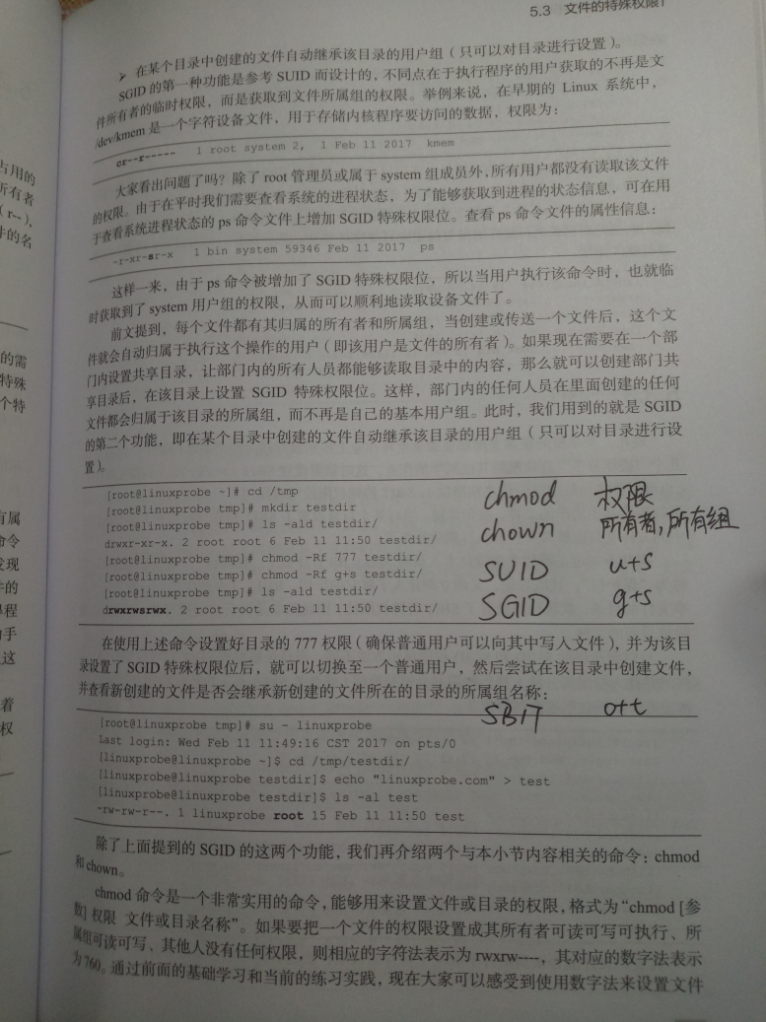 5.3 文件的特殊权限
➢ 在某个目录中创建的文件自动继承该目录的用户组（只可以对目录进行设置）。
SGID 的第一种功能是参考 SUID 而设计的，不同点在于执行程序的用户获取的不再是文
件所有者的临时权限，而是获取到文件所属组的权限。举例来说，在早期的 Linux 系统中，
/dev/kmem 是一个字符设备文件，用于存储内核程序要访问的数据，权限为：
cr--r----- 1 root system 2, 1 Feb 11 2017 kmem
大家看出问题了吗？除了 root 管理员或属于 system 组成员外，所有用户都没有读取该文件
的权限。由于在平时我们需要查看系统的进程状态，为了能够获取到进程的状态信息，可在用
于查看系统进程状态的 ps 命令文件上增加 SGID 特殊权限位。查看 ps 命令文件的属性信息：
-r-xr-sr-x 1 bin system 59346 Feb 11 2017 ps
这样一来，由于 ps 命令被增加了 SGID 特殊权限位，所以当用户执行该命令时，也就临
时获取到了 system 用户组的权限，从而可以顺利地读取设备文件了。
前文提到，每个文件都有其归属的所有者和所属组，当创建或传送一个文件后，这个文
件就会自动归属于执行这个操作的用户（即该用户是文件的所有者）。如果现在需要在一个部
门内设置共享目录，让部门内的所有人员都能够读取目录中的内容，那么就可以创建部门共
享目录后，在该目录上设置 SGID 特殊权限位。这样，部门内的任何人员在里面创建的任何
文件都会归属于该目录的所属组，而不再是自己的基本用户组。此时，我们用到的就是 SGID
的第二个功能，即在某个目录中创建的文件自动继承该目录的用户组（只可以对目录进行设
置）。
[root@linuxprobe ~]# cd /tmp
[root@linuxprobe tmp]# mkdir testdir
[root@linuxprobe tmp]# ls -ald testdir/
drwxr-xr-x. 2 root root 6 Feb 11 11:50 testdir/
[root@linuxprobe tmp]# chmod -Rf 777 testdir/
[root@linuxprobe tmp]# chmod -Rf g+s testdir/
[root@linuxprobe tmp]# ls -ald testdir/
drwxrwsrwx. 2 root root 6 Feb 11 11:50 testdir/
chmod 权限
chown 所有者,所有组
SUID u+s
SGID g+s
在使用上述命令设置好目录的 777 权限（确保普通用户可以向其中写入文件），并为该目
录设置了 SGID 特殊权限位后，就可以切换至一个普通用户，然后尝试在该目录中创建文件，
并查看新创建的文件是否会继承新创建的文件所在的目录的所属组名称：
SBIT o+t
[root@linuxprobe tmp]# su - linuxprobe
Last login: Wed Feb 11 11:49:16 CST 2017 on pts/0
[linuxprobe@linuxprobe ~]$ cd /tmp/testdir/
[linuxprobe@linuxprobe testdir]$ echo "linuxprobe.com" > test
[linuxprobe@linuxprobe testdir]$ ls -al test
-rw-rw-r--. 1 linuxprobe root 15 Feb 11 11:50 test
除了上面提到的 SGID 的这两个功能，我们再介绍两个与本小节内容相关的命令：chmod
和 chown。
chmod 命令是一个非常实用的命令，能够用来设置文件或目录的权限，格式为“chmod [参
数] 权限 文件或目录名称”。如果要把一个文件的权限设置成其所有者可读可写可执行、所
属组可读可写、其他人没有任何权限，则相应的字符法表示为 rwxrw----，其对应的数字法表示
为 760。通过前面的基础学习和当前的练习实践，现在大家可以感受到使用数字法来设置文件